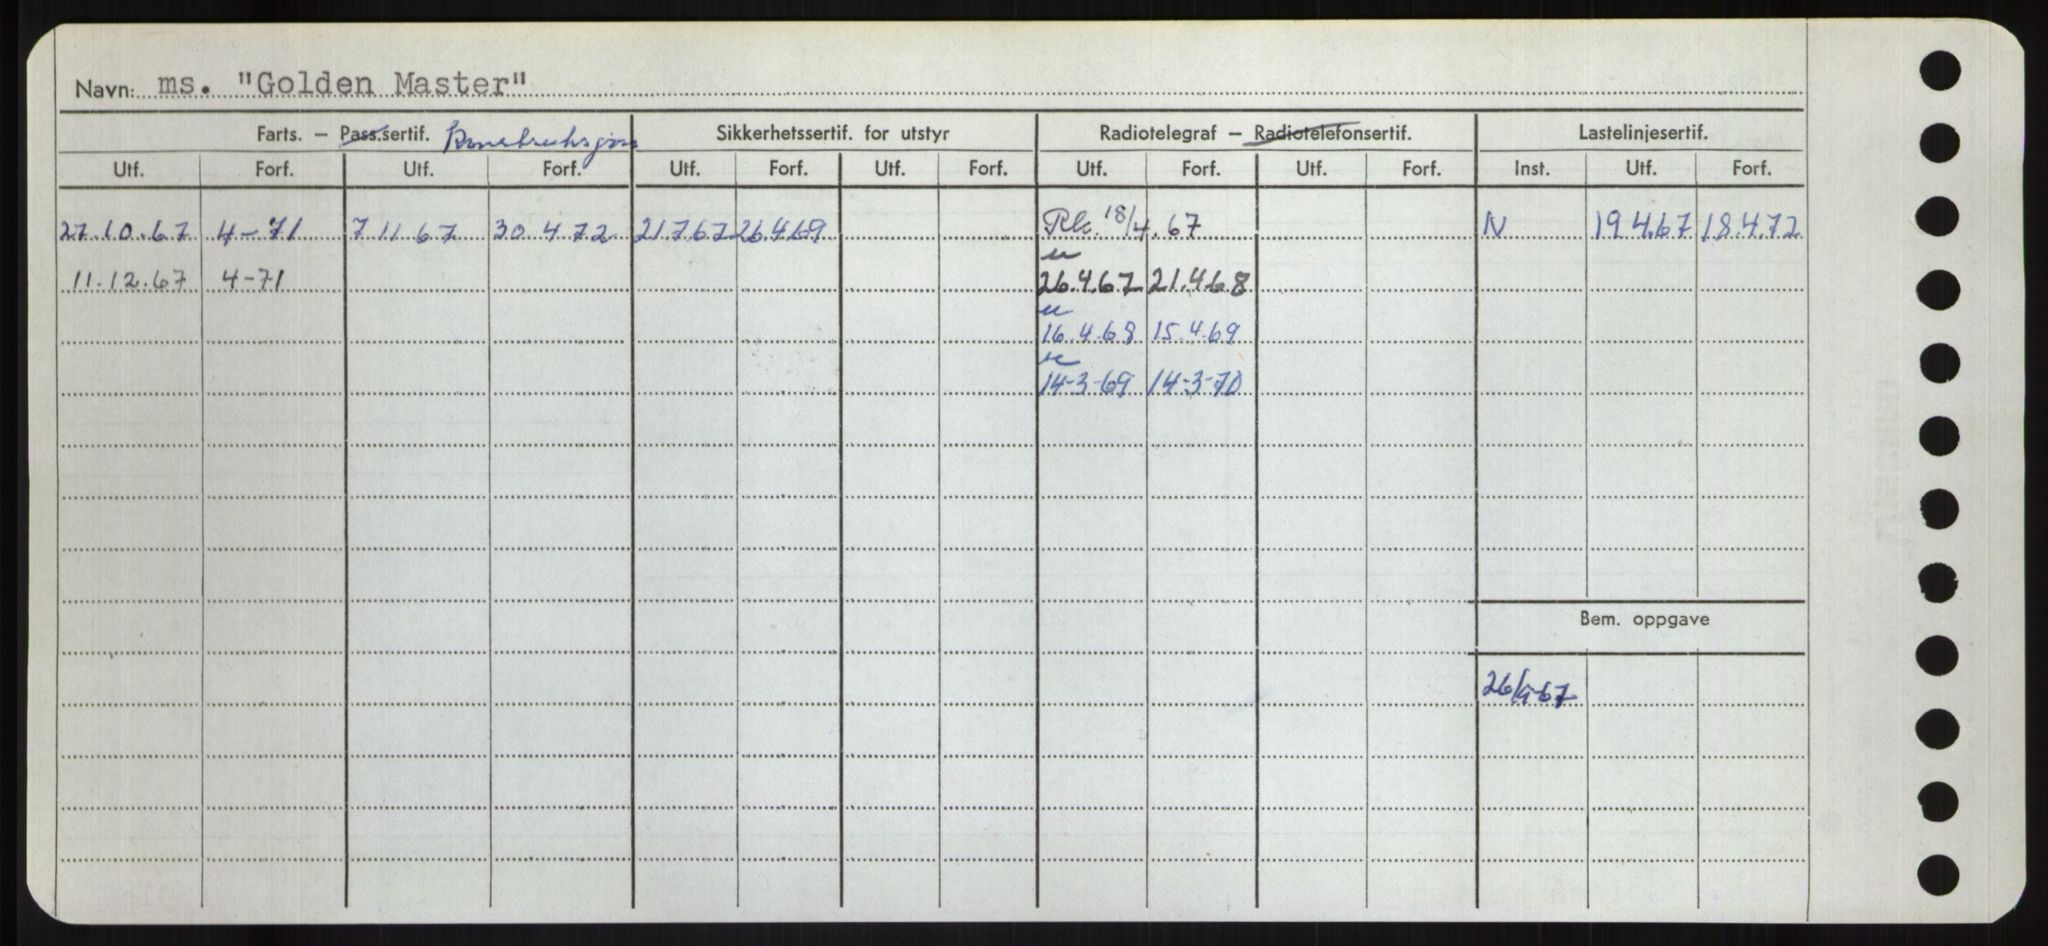 Navn: ms. "Golden Master"
Farts. — Pass.sertif. Konstruksjons Sikkerhetssertif. for utstyr Radiotelegraf — Radiotelefonsertif. Lastelinjesertif.
Utf. Forf. Utf. Forf. Utf. Forf. Utf. Forf. Utf. Forf. Utf. Forf. Inst. Utf. Forf.
27.10.67 4-71 7 11 67 30 4 72 21.7.67 26.4.69 18/4.67 N 19 4.67 18.4.72
11.12.67 4-71 26.4.67 21.4.68
16.4.68 15.4.69
14-3-69 14-3-70
Bem. oppgave
26/9-67